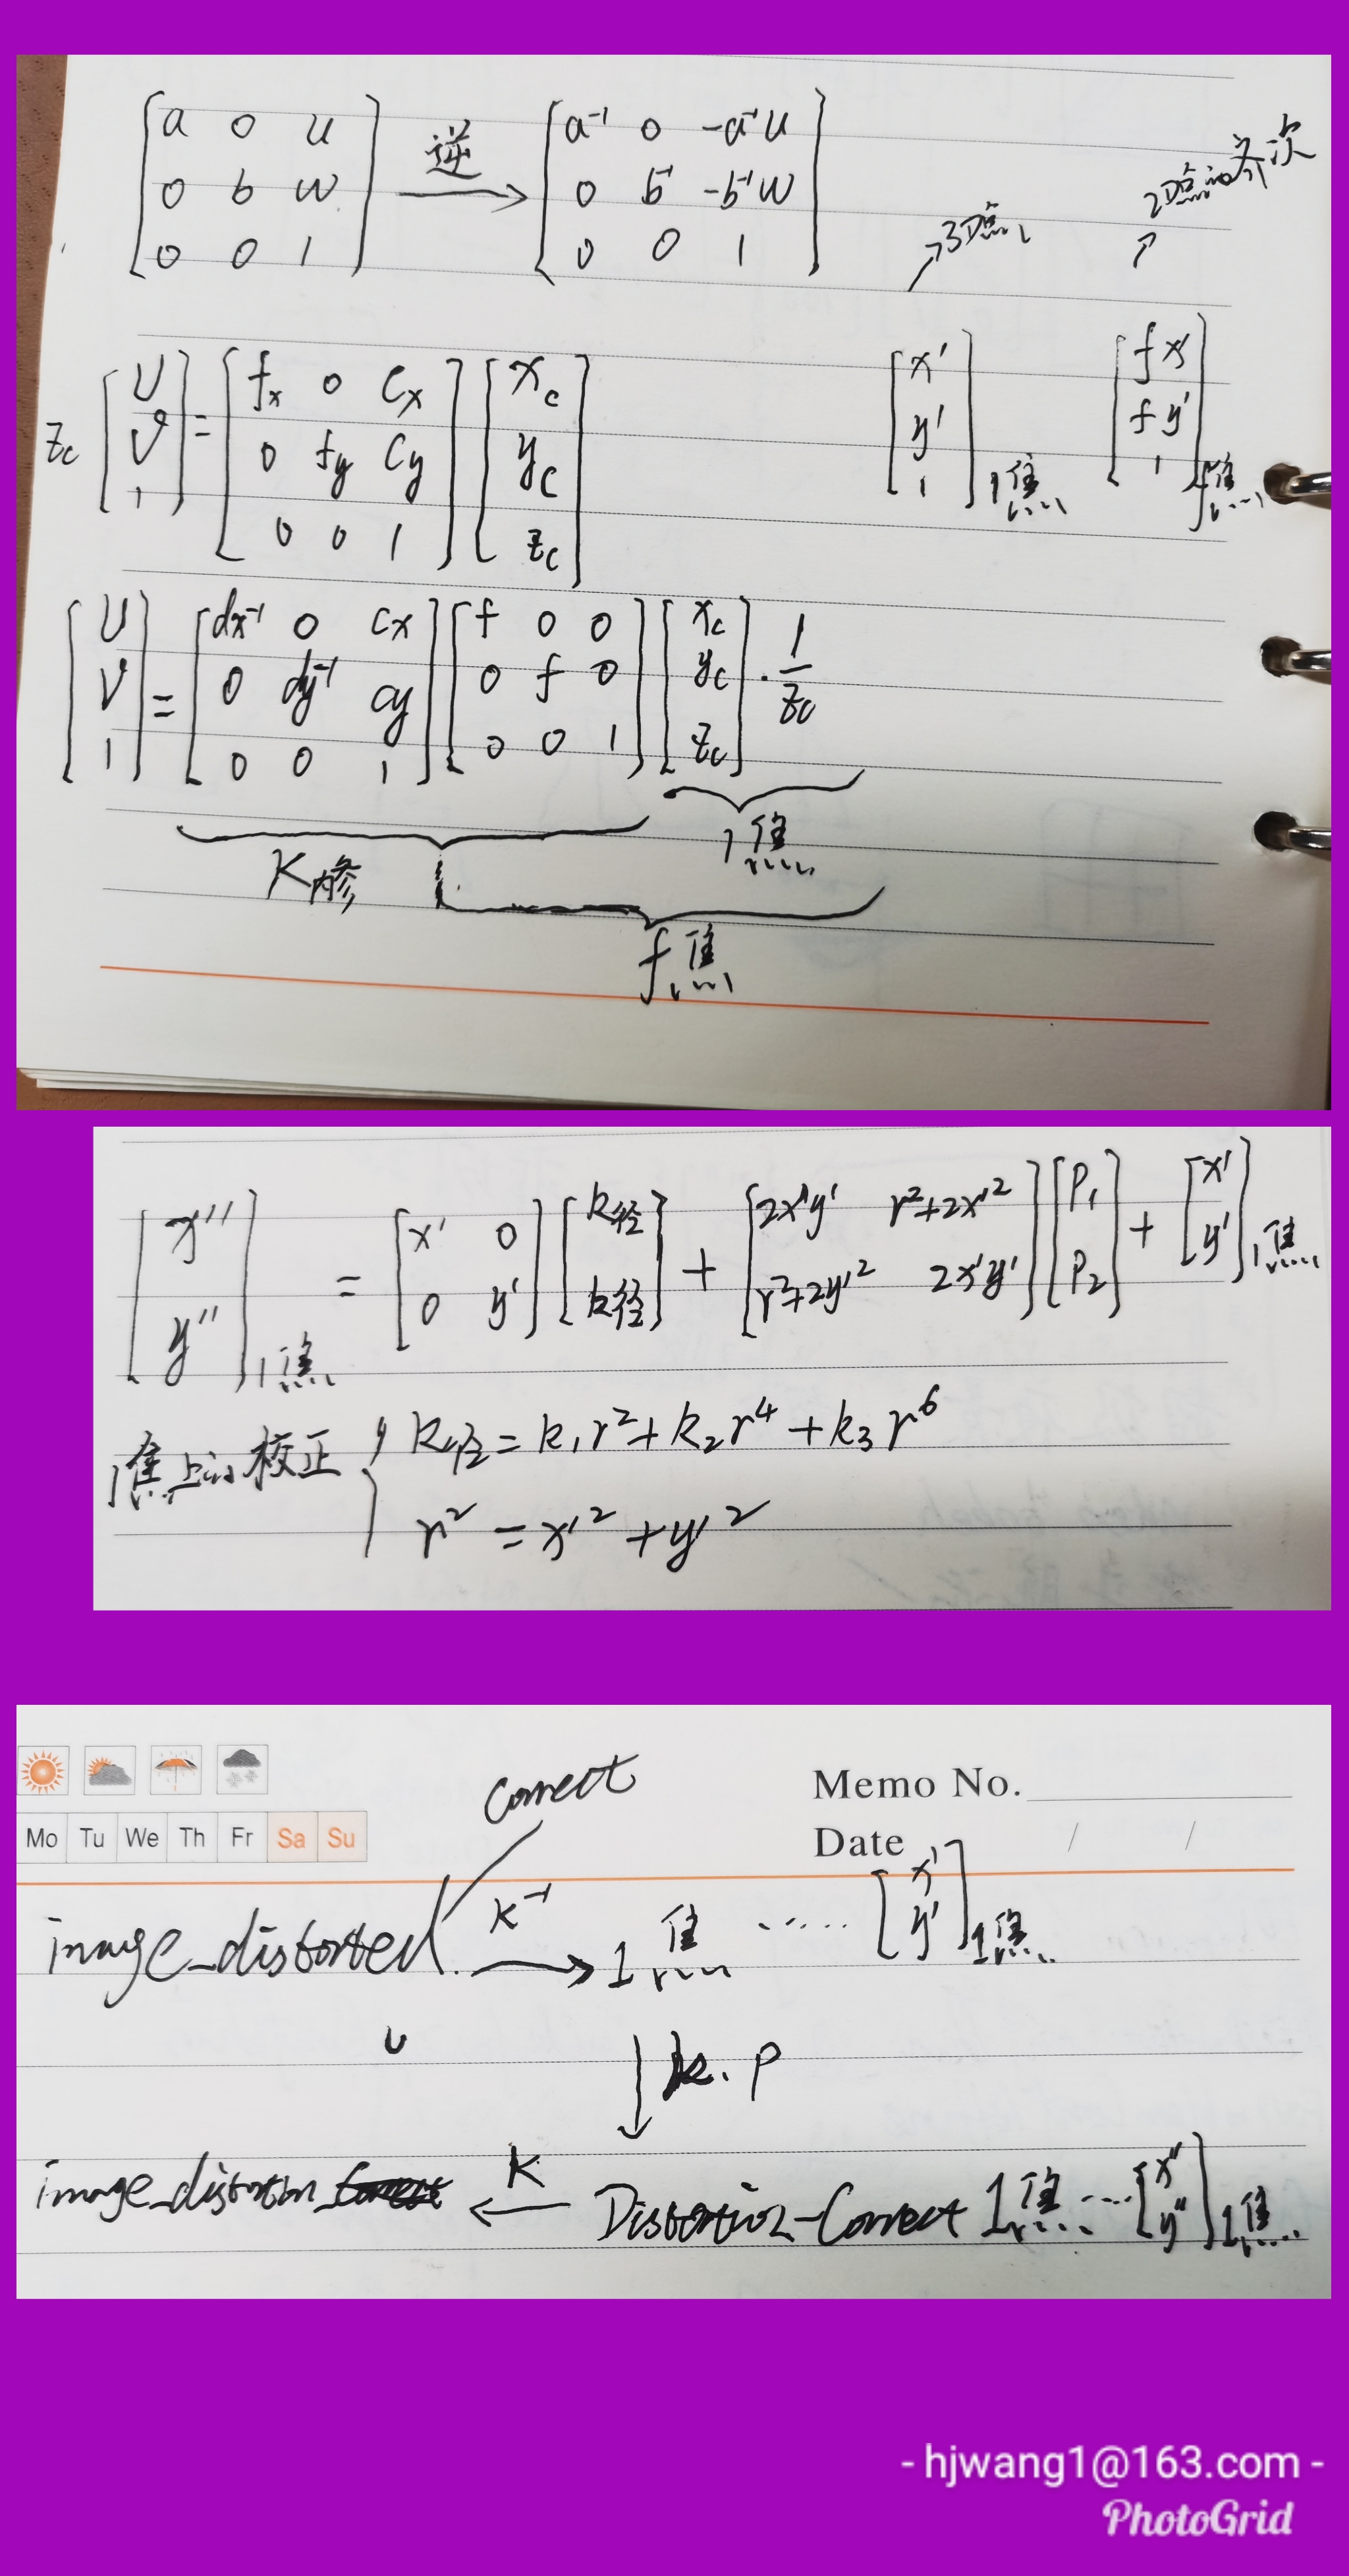 [a 0 u; 0 b w; 0 0 1] 逆→ [a⁻¹ 0 -a⁻¹u; 0 b⁻¹ -b⁻¹w; 0 0 1]
↗3D点 ↗2D点の齐次
z_c [u; v; 1] = [f_x 0 c_x; 0 f_y c_y; 0 0 1] [x_c; y_c; z_c]
[x'; y'; 1]1焦 [fx'; fy'; 1]f焦
[u; v; 1] = [dx⁻¹ 0 cx; 0 dy⁻¹ cy; 0 0 1] [f 0 0; 0 f 0; 0 0 1] [x_c; y_c; z_c] · 1/z_c
1焦
K内参
f焦
[x''; y'']1焦 = [x' 0; 0 y'] [k径; k径] + [2x'y' r²+2x'²; r²+2y'² 2x'y'] [p₁; p₂] + [x'; y']1焦
1焦上的校正 { k径 = k₁r² + k₂r⁴ + k₃r⁶
r² = x'² + y'²
Mo Tu We Th Fr Sa Su
Memo No.
Date / /
correct
image_distorted K⁻¹→ 1焦 ····· [x'; y']1焦
↓ k. p
image_distortion ←K Distortion-Correct 1焦 ··· [x''; y'']1焦
- hjwang1@163.com -
PhotoGrid